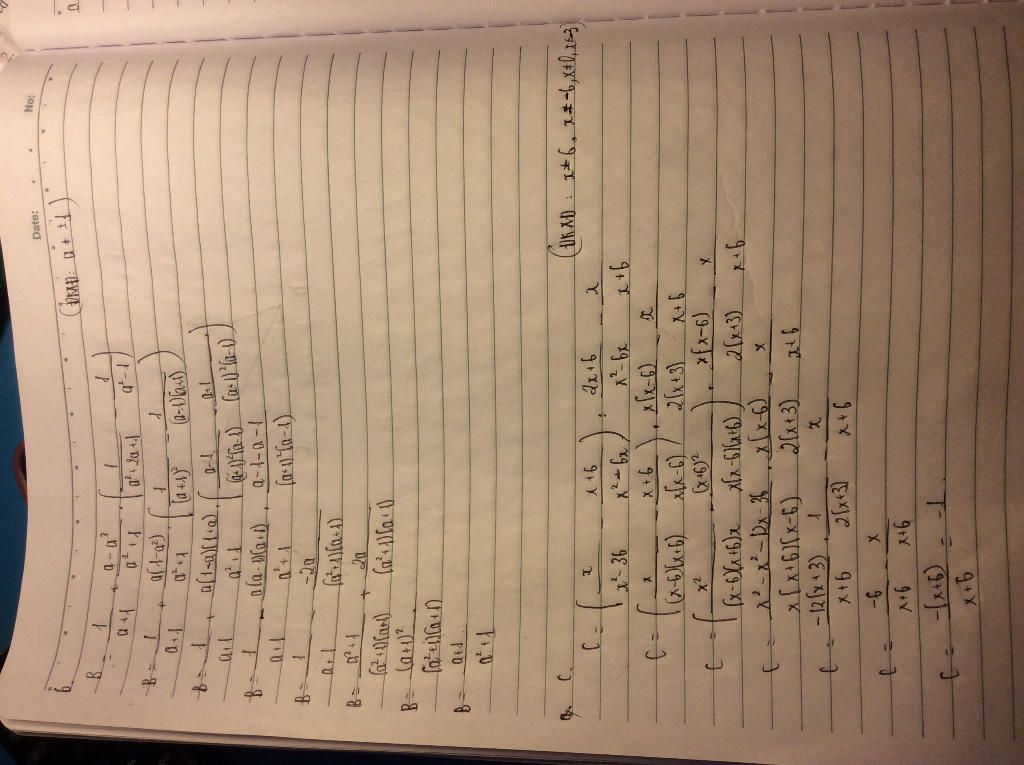 Date: No:
b.
B = 1/(a+1) + (a-a³)/(a²+1) . (1/(a²+2a+1) - 1/(a²-1)) (ĐKXĐ: a ≠ ±1)
B = 1/(a+1) + a(1-a²)/(a²+1) . (1/(a+1)² - 1/((a-1)(a+1)))
B = 1/(a+1) + a(1-a)(1+a)/(a²+1) . ((a-1)/((a+1)²(a-1)) - (a+1)/((a+1)²(a-1)))
B = 1/(a+1) - a(a-1)(a+1)/(a²+1) . (a-1-a-1)/((a+1)²(a-1))
B = 1/(a+1) - (-2a)/((a²+1)(a+1))
B = (a²+1)/((a²+1)(a+1)) + 2a/((a²+1)(a+1))
B = (a+1)²/((a²+1)(a+1))
B = (a+1)/(a²+1)
C. (ĐKXĐ: x ≠ 6, x ≠ -6, x ≠ 0, x ≠ -3)
C = (x/(x²-36) - (x+6)/(x²-6x)) : (2x+6)/(x²-6x) - x/(x+6)
C = (x/((x-6)(x+6)) - (x+6)/(x(x-6))) . x(x-6)/(2(x+3)) - x/(x+6)
C = (x²/((x-6)(x+6)x) - (x+6)²/(x(x-6)(x+6))) . x(x-6)/(2(x+3)) - x/(x+6)
C = (x²-x²-12x-36)/(x(x+6)(x-6)) . x(x-6)/(2(x+3)) - x/(x+6)
C = -12(x+3)/(x+6) . 1/(2(x+3)) - x/(x+6)
C = -6/(x+6) - x/(x+6)
C = -(x+6)/(x+6) = -1.